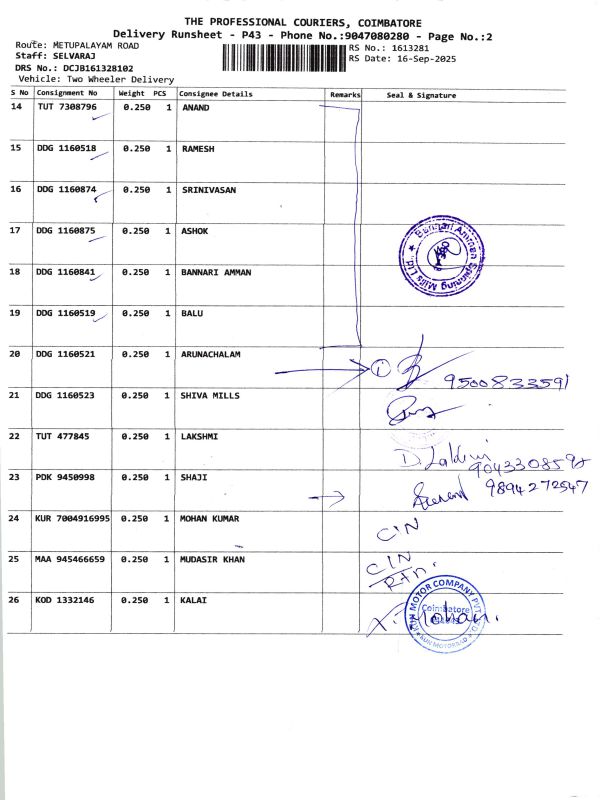 THE PROFESSIONAL COURIERS, COIMBATORE
Delivery Runsheet - P43 - Phone No.:9047080280 - Page No.:2
Route: METUPALAYAM ROAD
Staff: SELVARAJ
DRS No.: DCJB161328102
Vehicle: Two Wheeler Delivery
RS No.: 1613281
RS Date: 16-Sep-2025
S No Consignment No Weight PCS Consignee Details Remarks Seal & Signature
14 TUT 7308796 0.250 1 ANAND
15 DDG 1160518 0.250 1 RAMESH
16 DDG 1160874 0.250 1 SRINIVASAN
17 DDG 1160875 0.250 1 ASHOK
Bannari Amman Spinning Mills Ltd.
18 DDG 1160841 0.250 1 BANNARI AMMAN
19 DDG 1160519 0.250 1 BALU
20 DDG 1160521 0.250 1 ARUNACHALAM
1
9500833591
21 DDG 1160523 0.250 1 SHIVA MILLS
22 TUT 477845 0.250 1 LAKSHMI
D. Lakshmi
23 PDK 9450998 0.250 1 SHAJI
9894272547
24 KUR 7004916995 0.250 1 MOHAN KUMAR
CIN
25 MAA 945466659 0.250 1 MUDASIR KHAN
CIN
Rtn.
26 KOD 1332146 0.250 1 KALAI
KUN MOTOR COMPANY PVT LTD
Coimbatore
KUN MOTORRAD
Mohan.